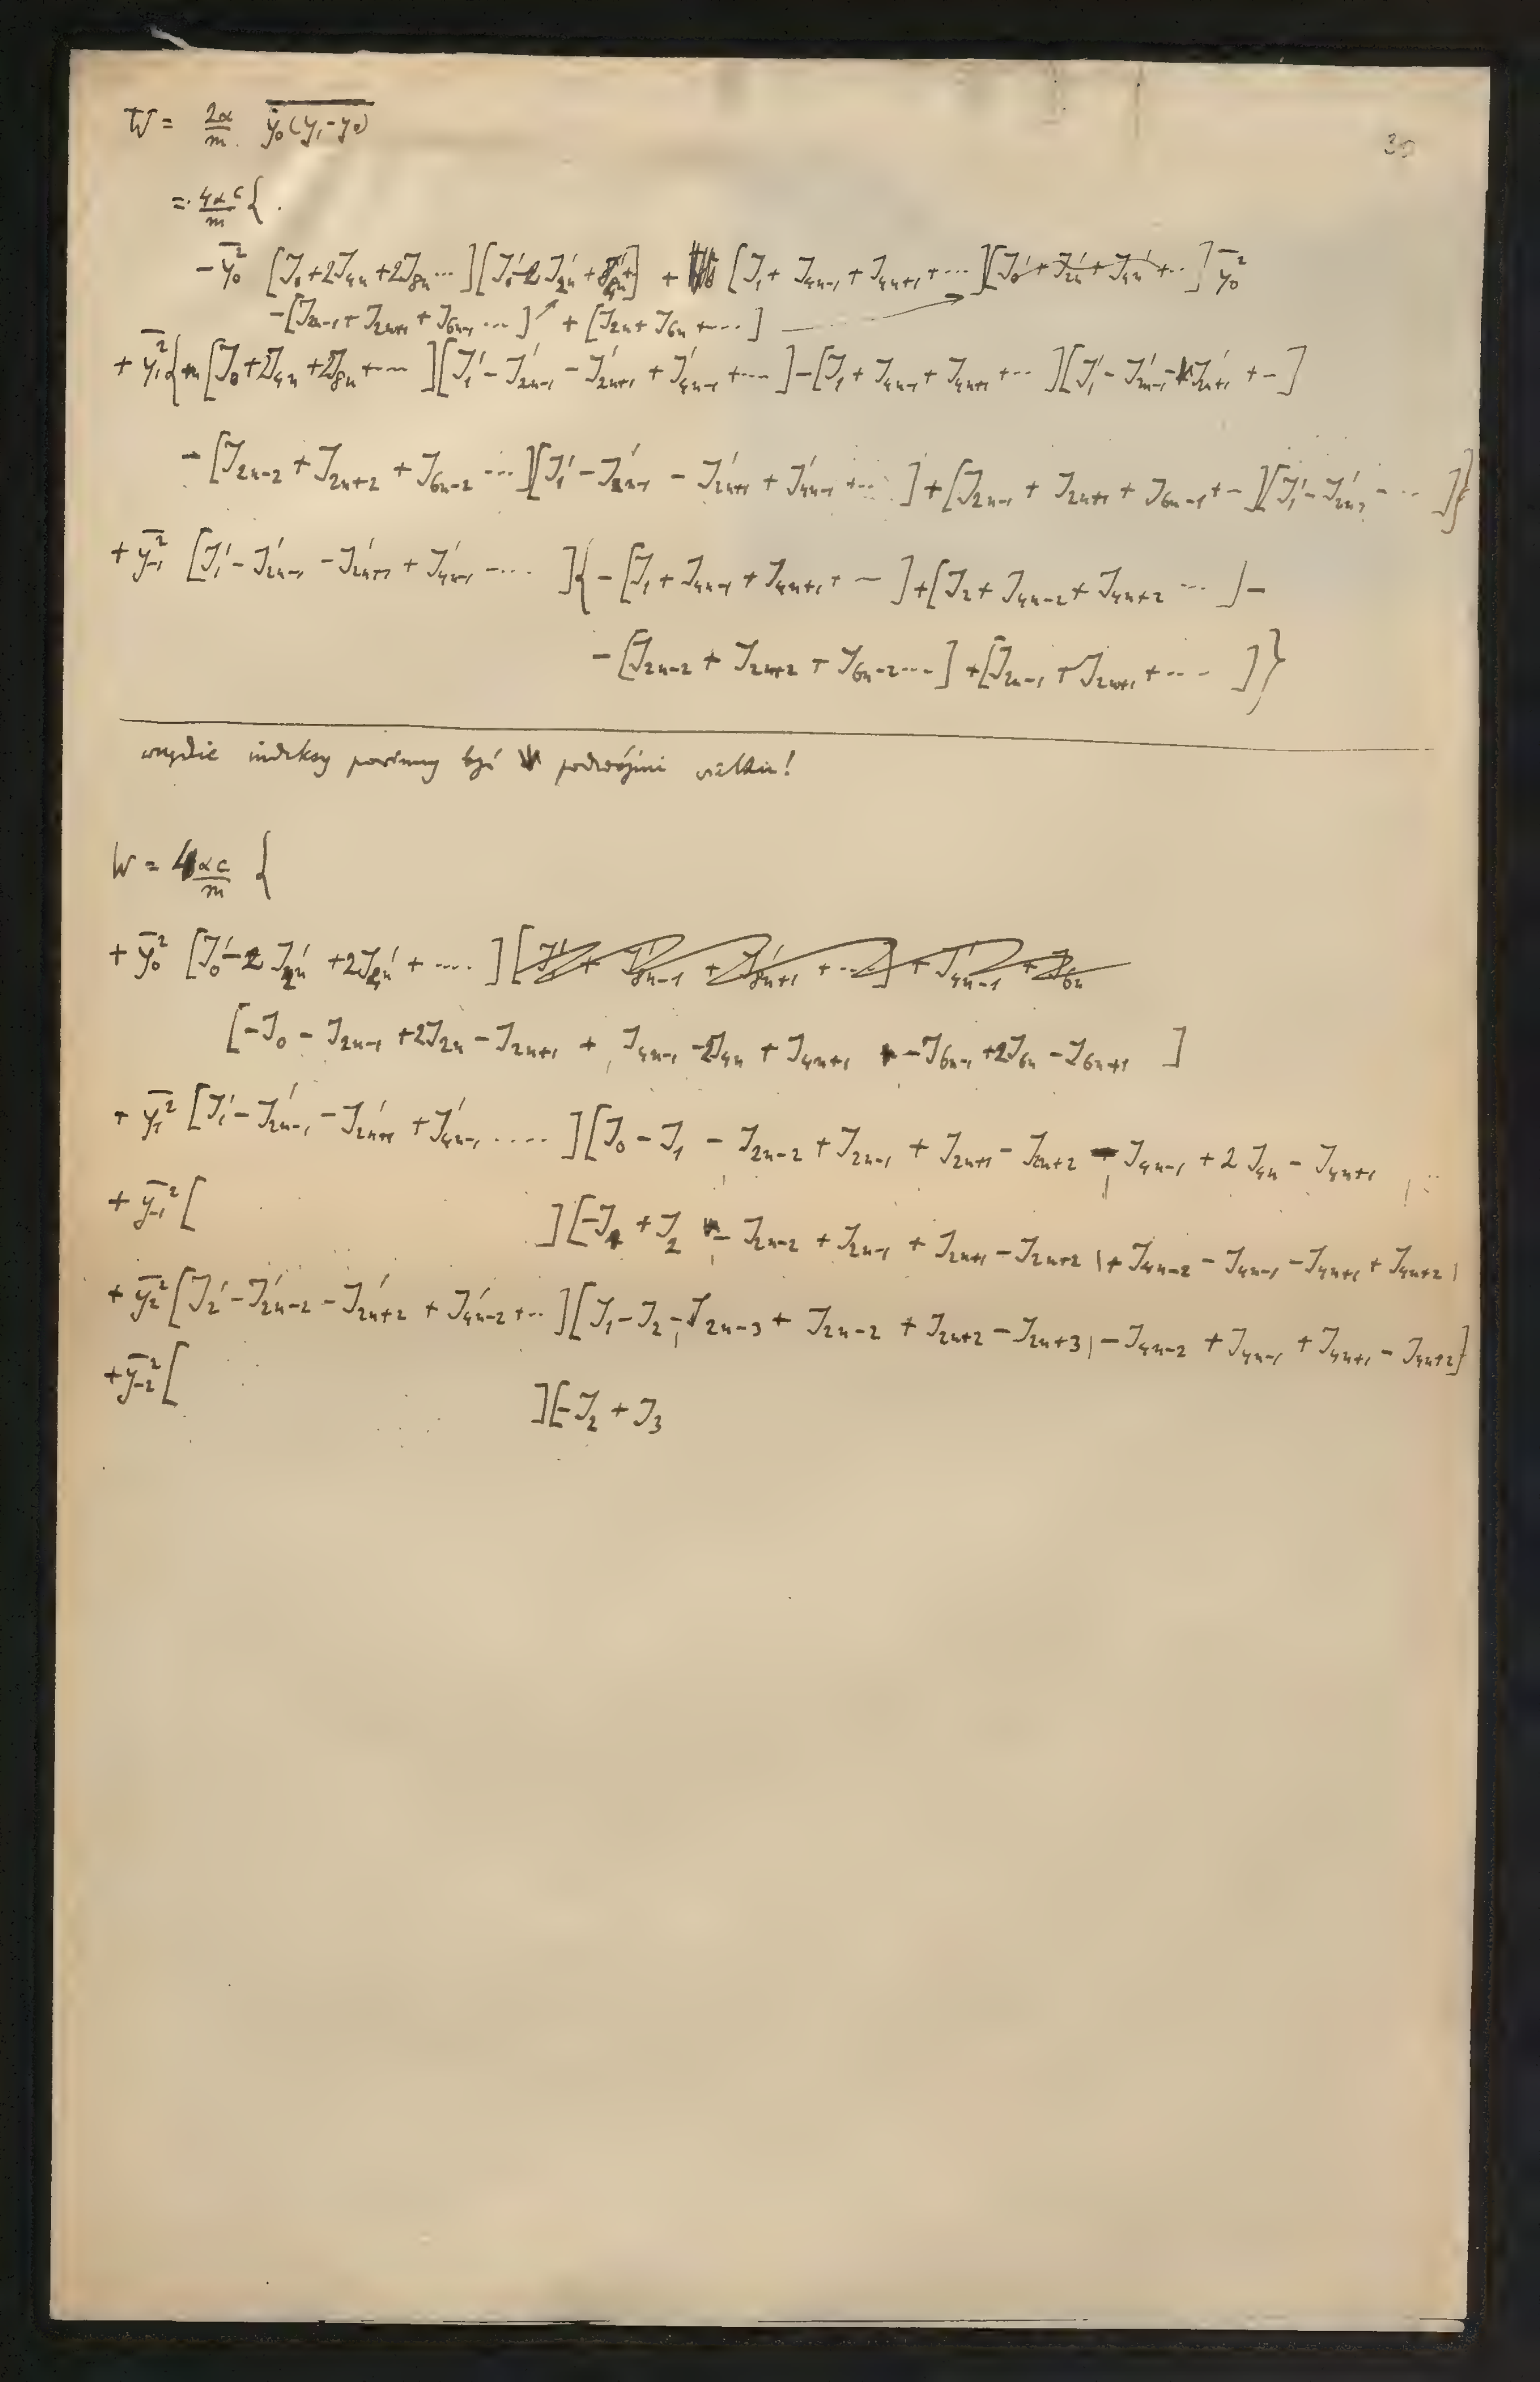 30
W = 2α/m . ẏ₀(y₁-y₀)
= 4αc/m { .
- ẏ₀² [J₀+2J₄ₙ+2J₈ₙ ...][J₀'-2J₂ₙ'+ + [J₁+ J₄ₙ₋₁ + J₄ₙ₊₁ + ...][J₀'+J₂ₙ'+J₄ₙ'+...] ẏ₀²
-[J₂ₙ₋₁+J₂ₙ₊₁+J₆ₙ₋₁ ...] + [J₂ₙ+J₆ₙ+...]
+ ẏ₁² { [J₀+2J₄ₙ+2J₈ₙ+...][J₁'-J₂ₙ₋₁'-J₂ₙ₊₁'+J₄ₙ₋₁'+....]-[J₁+J₄ₙ₋₁+J₄ₙ₊₁+...][J₁'-J₂ₙ₋₁'-J₂ₙ₊₁'+-]
- [J₂ₙ₋₂+J₂ₙ₊₂+J₆ₙ₋₂ ...][J₁'-J₂ₙ₋₁'-J₂ₙ₊₁'+J₄ₙ₋₁'+...]+[J₂ₙ₋₁+J₂ₙ₊₁+J₆ₙ₋₁+-][J₁'-J₂ₙ₋₁'-... ]}
+ ẏ₋₁² [J₁'-J₂ₙ₋₁'-J₂ₙ₊₁'+J₄ₙ₋₁'-.... ]{-[J₁+J₄ₙ₋₁+J₄ₙ₊₁+ - ]+[J₂+J₄ₙ₋₂+J₄ₙ₊₂ ... ]-
-[J₂ₙ₋₂+J₂ₙ₊₂+J₆ₙ₋₂....]+[J₂ₙ₋₁+J₂ₙ₊₁+... ]}
wszędzie indeksy powinny być podwójnie wielkie!
W = 4αc/m {
+ ẏ₀² [J₀'-2J₂ₙ'+2J₄ₙ'+....][J₁'+J₈ₙ₋₁'+J₈ₙ₊₁'+...]+J₄ₙ₋₁'+J₆ₙ
[-J₀-J₂ₙ₋₁+2J₂ₙ-J₂ₙ₊₁+J₄ₙ₋₁-2J₄ₙ+J₄ₙ₊₁ -J₆ₙ₋₁+2J₆ₙ-J₆ₙ₊₁ ]
+ ẏ₁² [J₁'-J₂ₙ₋₁'-J₂ₙ₊₁'+J₄ₙ₋₁' .....][J₀-J₁-J₂ₙ₋₂+J₂ₙ₋₁+J₂ₙ₊₁-J₂ₙ₊₂-J₄ₙ₋₁+2J₄ₙ-J₄ₙ₊₁
+ ẏ₋₁² [ ][-J₁+J₂-J₂ₙ₋₂+J₂ₙ₋₁+J₂ₙ₊₁-J₂ₙ₊₂|+J₄ₙ₋₂-J₄ₙ₋₁-J₄ₙ₊₁+J₄ₙ₊₂|
+ ẏ₂² [J₂'-J₂ₙ₋₂'-J₂ₙ₊₂'+J₄ₙ₋₂'+...][J₁-J₂-J₂ₙ₋₃+J₂ₙ₋₂+J₂ₙ₊₂-J₂ₙ₊₃|-J₄ₙ₋₂+J₄ₙ₋₁+J₄ₙ₊₁-J₄ₙ₊₂]
+ ẏ₋₂² [ ][-J₂+J₃